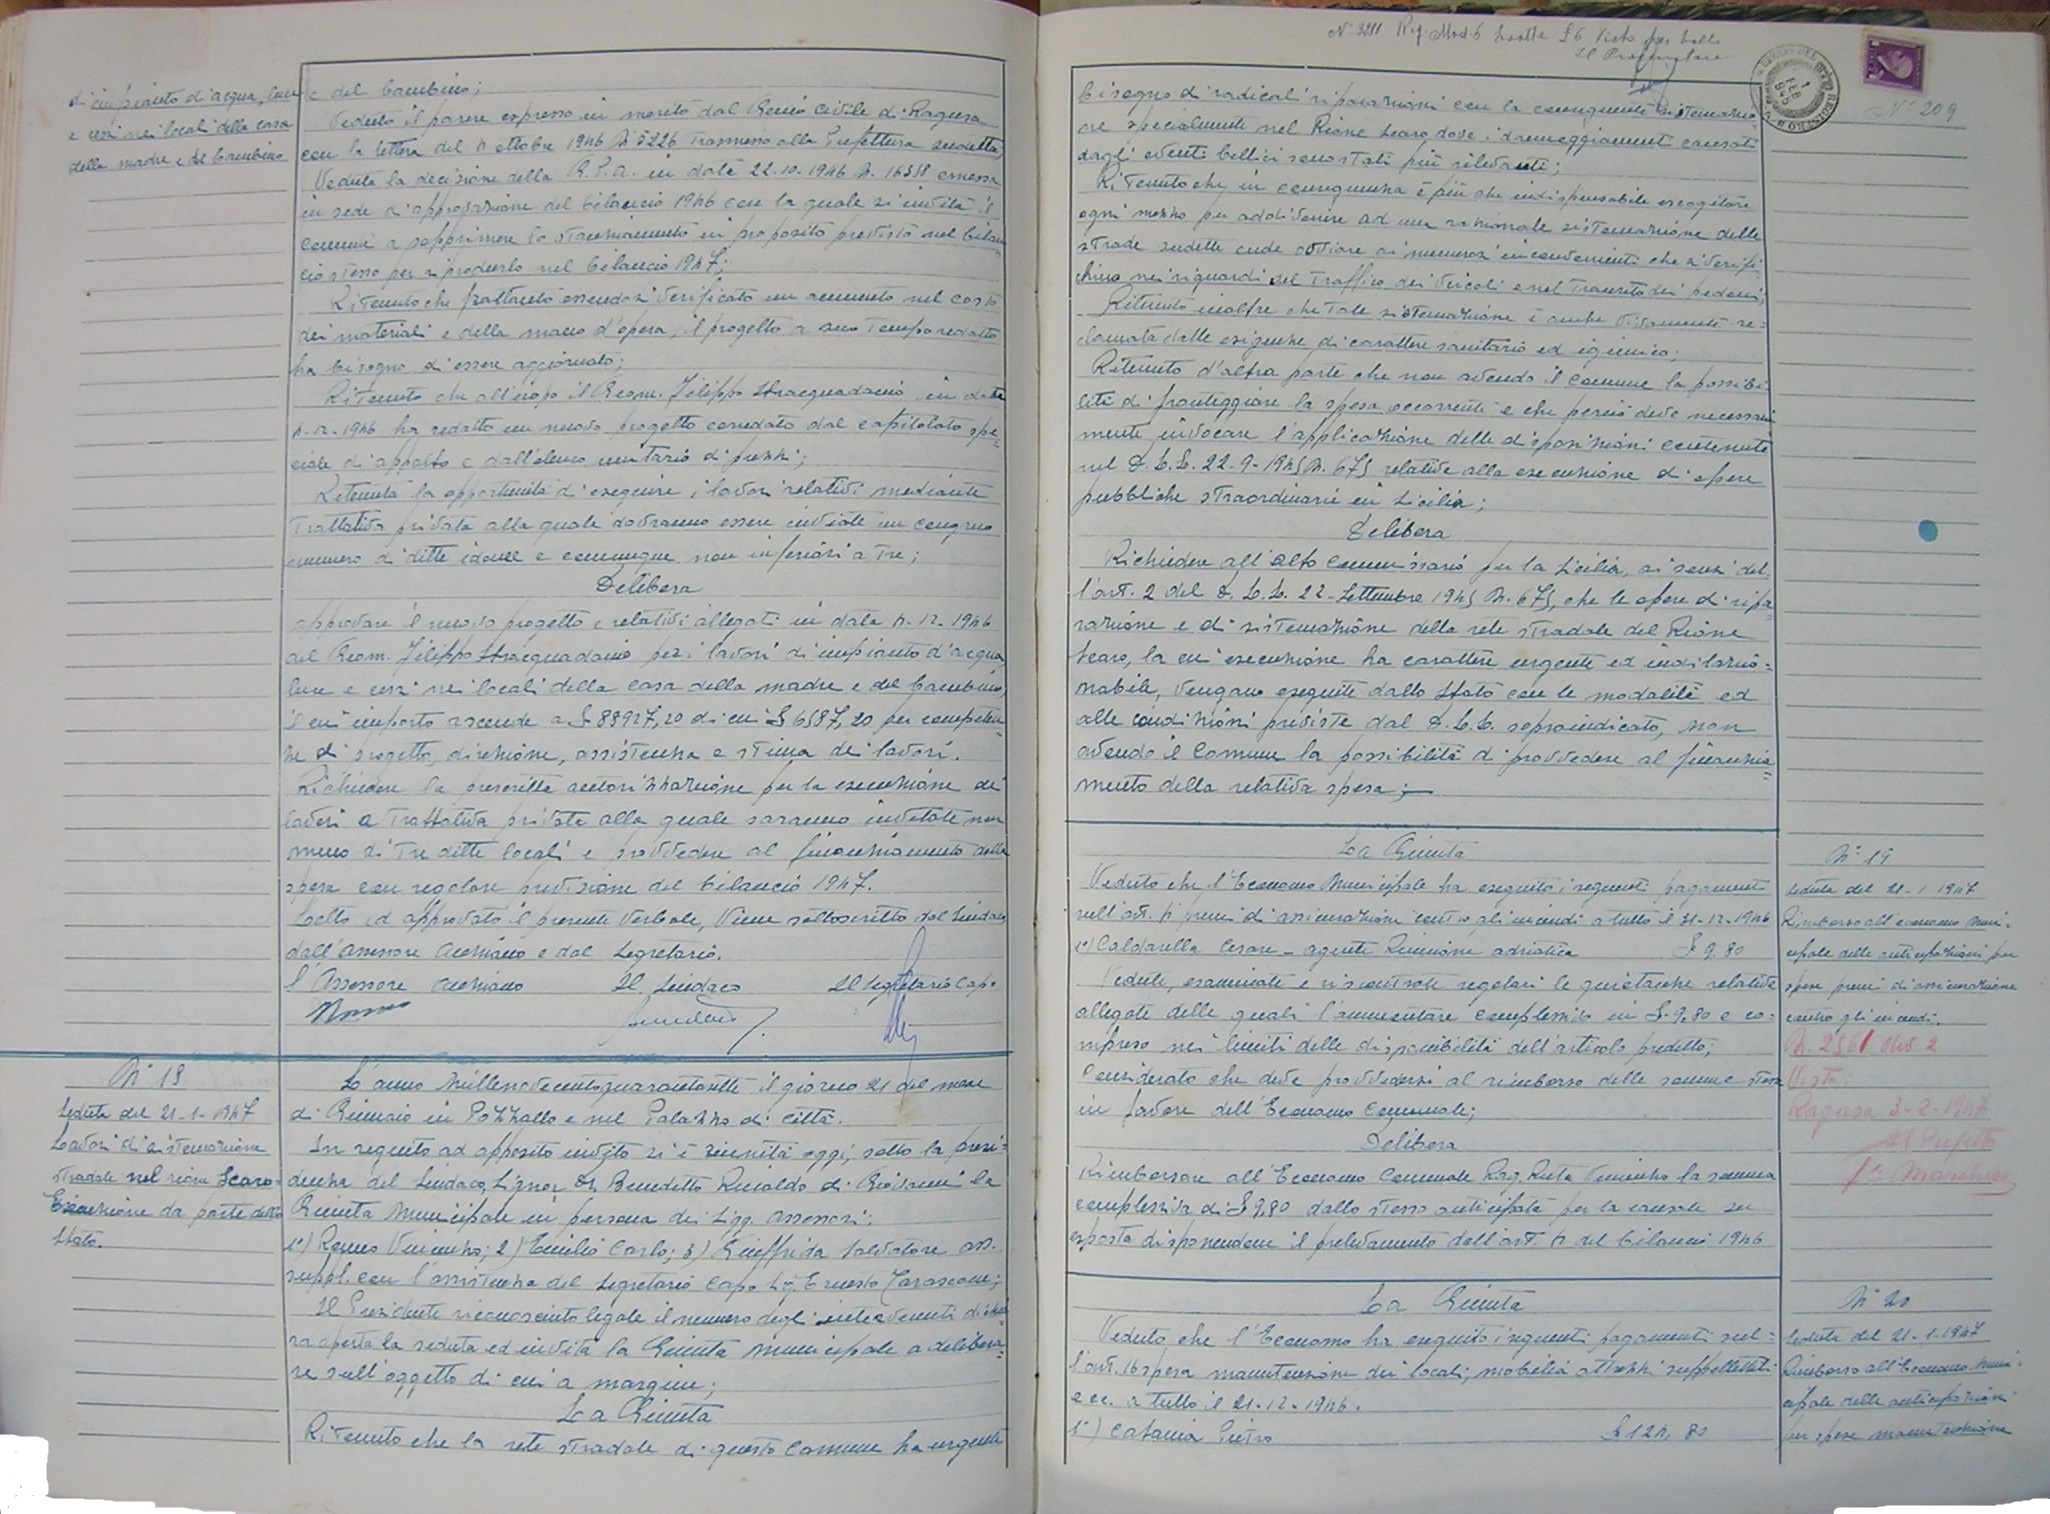 di impianto d'acqua, luce
e cessi nei locali della casa
della madre e del bambino
e del bambino;
Veduto il parere espresso in merito dal Genio Civile di Ragusa
con la lettera del 4 ottobre 1946 N. 5226 trasmessa alla Prefettura sudetta;
Veduta la decisione della G.P.A. in data 22-10-1946 N. 16558 emessa
in sede di approvazione del bilancio 1946 con la quale si invita il
comune a sopprimere lo stanziamento in proposito previsto nel bilan
cio stesso per riprodurlo nel bilancio 1947;
Ritenuto che frattanto essendosi verificato un aumento nel costo
dei materiali e della mano d'opera, il progetto a suo tempo redatto
ha bisogno di essere aggiornato;
Ritenuto che all'uopo il Geom. Filippo Stracquadanio in data
4-12-1946 ha redatto un nuovo progetto corredato dal capitolato spe=
ciale di appalto e dall'elenco unitario di prezzi;
Ritenuta la opportunità di eseguire i lavori relativi mediante
trattativa privata alla quale dovranno essere invitate un congruo
numero di ditte idonee e comunque non inferiori a tre;
Delibera
approvare il nuovo progetto e relativi allegati in data 4-12-1946
del Geom. Filippo Stracquadanio per i lavori di impianto d'acqua
luce e cessi nei locali della casa della madre e del bambino,
il cui importo ascende a £ 88927,20 di cui £ 6587,20 per competen
ze di progetto, direzione, assistenza e stima dei lavori.
Richiedere la prescritta autorizzazione per la esecuzione dei
lavori a trattativa privata alla quale saranno invitate non
meno di tre ditte locali e provvedere al finanziamento della
spesa con regolare previsione del bilancio 1947.
Letto ed approvato il presente verbale, viene sottoscritto dal Sindaco
dall'assessore anziano e dal Segretario.
l'Assessore anziano Il Sindaco Il Segretario Capo
N° 18
Seduta del 21-1-1947
Lavori di sistemazione
stradale nel rione Scaro=
Esecuzione da parte dello
Stato.
L'anno Millenovecentoquarantasette il giorno 21 del mese
di Gennaio in Pozzallo e nel Palazzo di città.
In seguito ad apposito invito si è riunita oggi, sotto la presi=
denza del Sindaco, Signor Dr. Benedetto Rinaldo di Giovanni la
Giunta Municipale in persona dei Sigg. assessori:
1°) Vincenzo; 2) Emilio Carlo; 3) Giuffrida Salvatore ass.
suppl. con l'assistenza del Segretario Capo Sig. Ernesto Tarascone;
Il Presidente riconosciuto legale il numero degli intervenuti dichia
ra aperta la seduta ed invita la Giunta Municipale a delibera=
re sull'oggetto di cui a margine;
La Giunta
Ritenuto che la rete stradale di questo Comune ha urgente
N° 3211 Reg. Mod. 6 Esatte £ 6 Visto per bollo
Il Procuratore
N° 209
bisogno di radicali riparazioni con la conseguente sistemazio
ne specialmente nel Rione Scaro dove i danneggiamenti causati
dagli eventi bellici sono stati più rilevanti;
Ritenuto che in conseguenza è più che indispensabile escogitare
ogni mezzo per addivenire ad una razionale sistemazione delle
strade sudette onde ovviare ai numerosi inconvenienti che si verifi
chino nei riguardi del traffico dei veicoli e nel transito dei pedoni;
Ritenuto inoltre che tale sistemazione è anche vivamente re=
clamata dalle esigenze di carattere sanitario ed igienico;
Ritenuto d'altra parte che non avendo il comune la possibi
lità di fronteggiare la spesa occorrente e che perciò deve necessaria
mente invocare l'applicazione delle disposizioni contenute
nel D.L.L. 22-9-1945 N. 675 relative alla esecuzione di opere
pubbliche straordinarie in Sicilia;
Delibera
Richiedere all'alto commissario per la Sicilia, ai sensi del
l'art. 2 del D.L.L. 22-Settembre 1945 N. 675, che le opere di ripa
razione e di sistemazione della rete stradale del Rione
Scaro, la cui esecuzione ha carattere urgente ed indilazio=
nabile, vengano eseguite dallo Stato con le modalità ed
alle condizioni previste dal D.L.L. sopraindicato, non
avendo il Comune la possibilità di provvedere al finanzia=
mento della relativa spesa;
La Giunta
Veduto che l'Economo Municipale ha eseguito i seguenti pagamenti
sull'art. 4 premi di assicurazione contro gli incendi a tutto il 31-12-1946
1°) Caldarella Cesare - agente Riunione adriatica £ 9.80
Vedute, esaminate e riscontrate regolari le quietanze relative
allegate delle quali l'ammontare complessivo in £. 9,80 e co=
mpreso nei limiti delle disponibilità dell'articolo predetto;
Considerato che deve provvedersi al rimborso delle somme stesse
in favore dell'Economo Comunale;
Delibera
Rimborsare all'Economo Comunale Rag. Ruta Vincenzo la somma
complessiva di £ 9,80 dallo stesso anticipata per la causale su
esposta disponendone il prelevamento dall'art. 4 del bilancio 1946
La Giunta
Veduto che l'Economo ha eseguito i seguenti pagamenti sul=
l'art. 16 spesa manutenzione dei locali, mobilia attrezzi suppellettili
e cc. a tutto il 31-12-1946.
1°) Catania Pietro £ 124,80
N° 19
Seduta del 21-1-1947
Rimborso all'economo Muni=
cipale delle anticipazioni per
spese premi di assicurazione
contro gli incendi.
N. 2561 Div 2
Visto:
Ragusa 3-2-1947
Il Prefetto
N° 20
Seduta del 21-1-1947
Rimborso all'Economo Muni=
cipale delle anticipazioni
per spese manutenzione